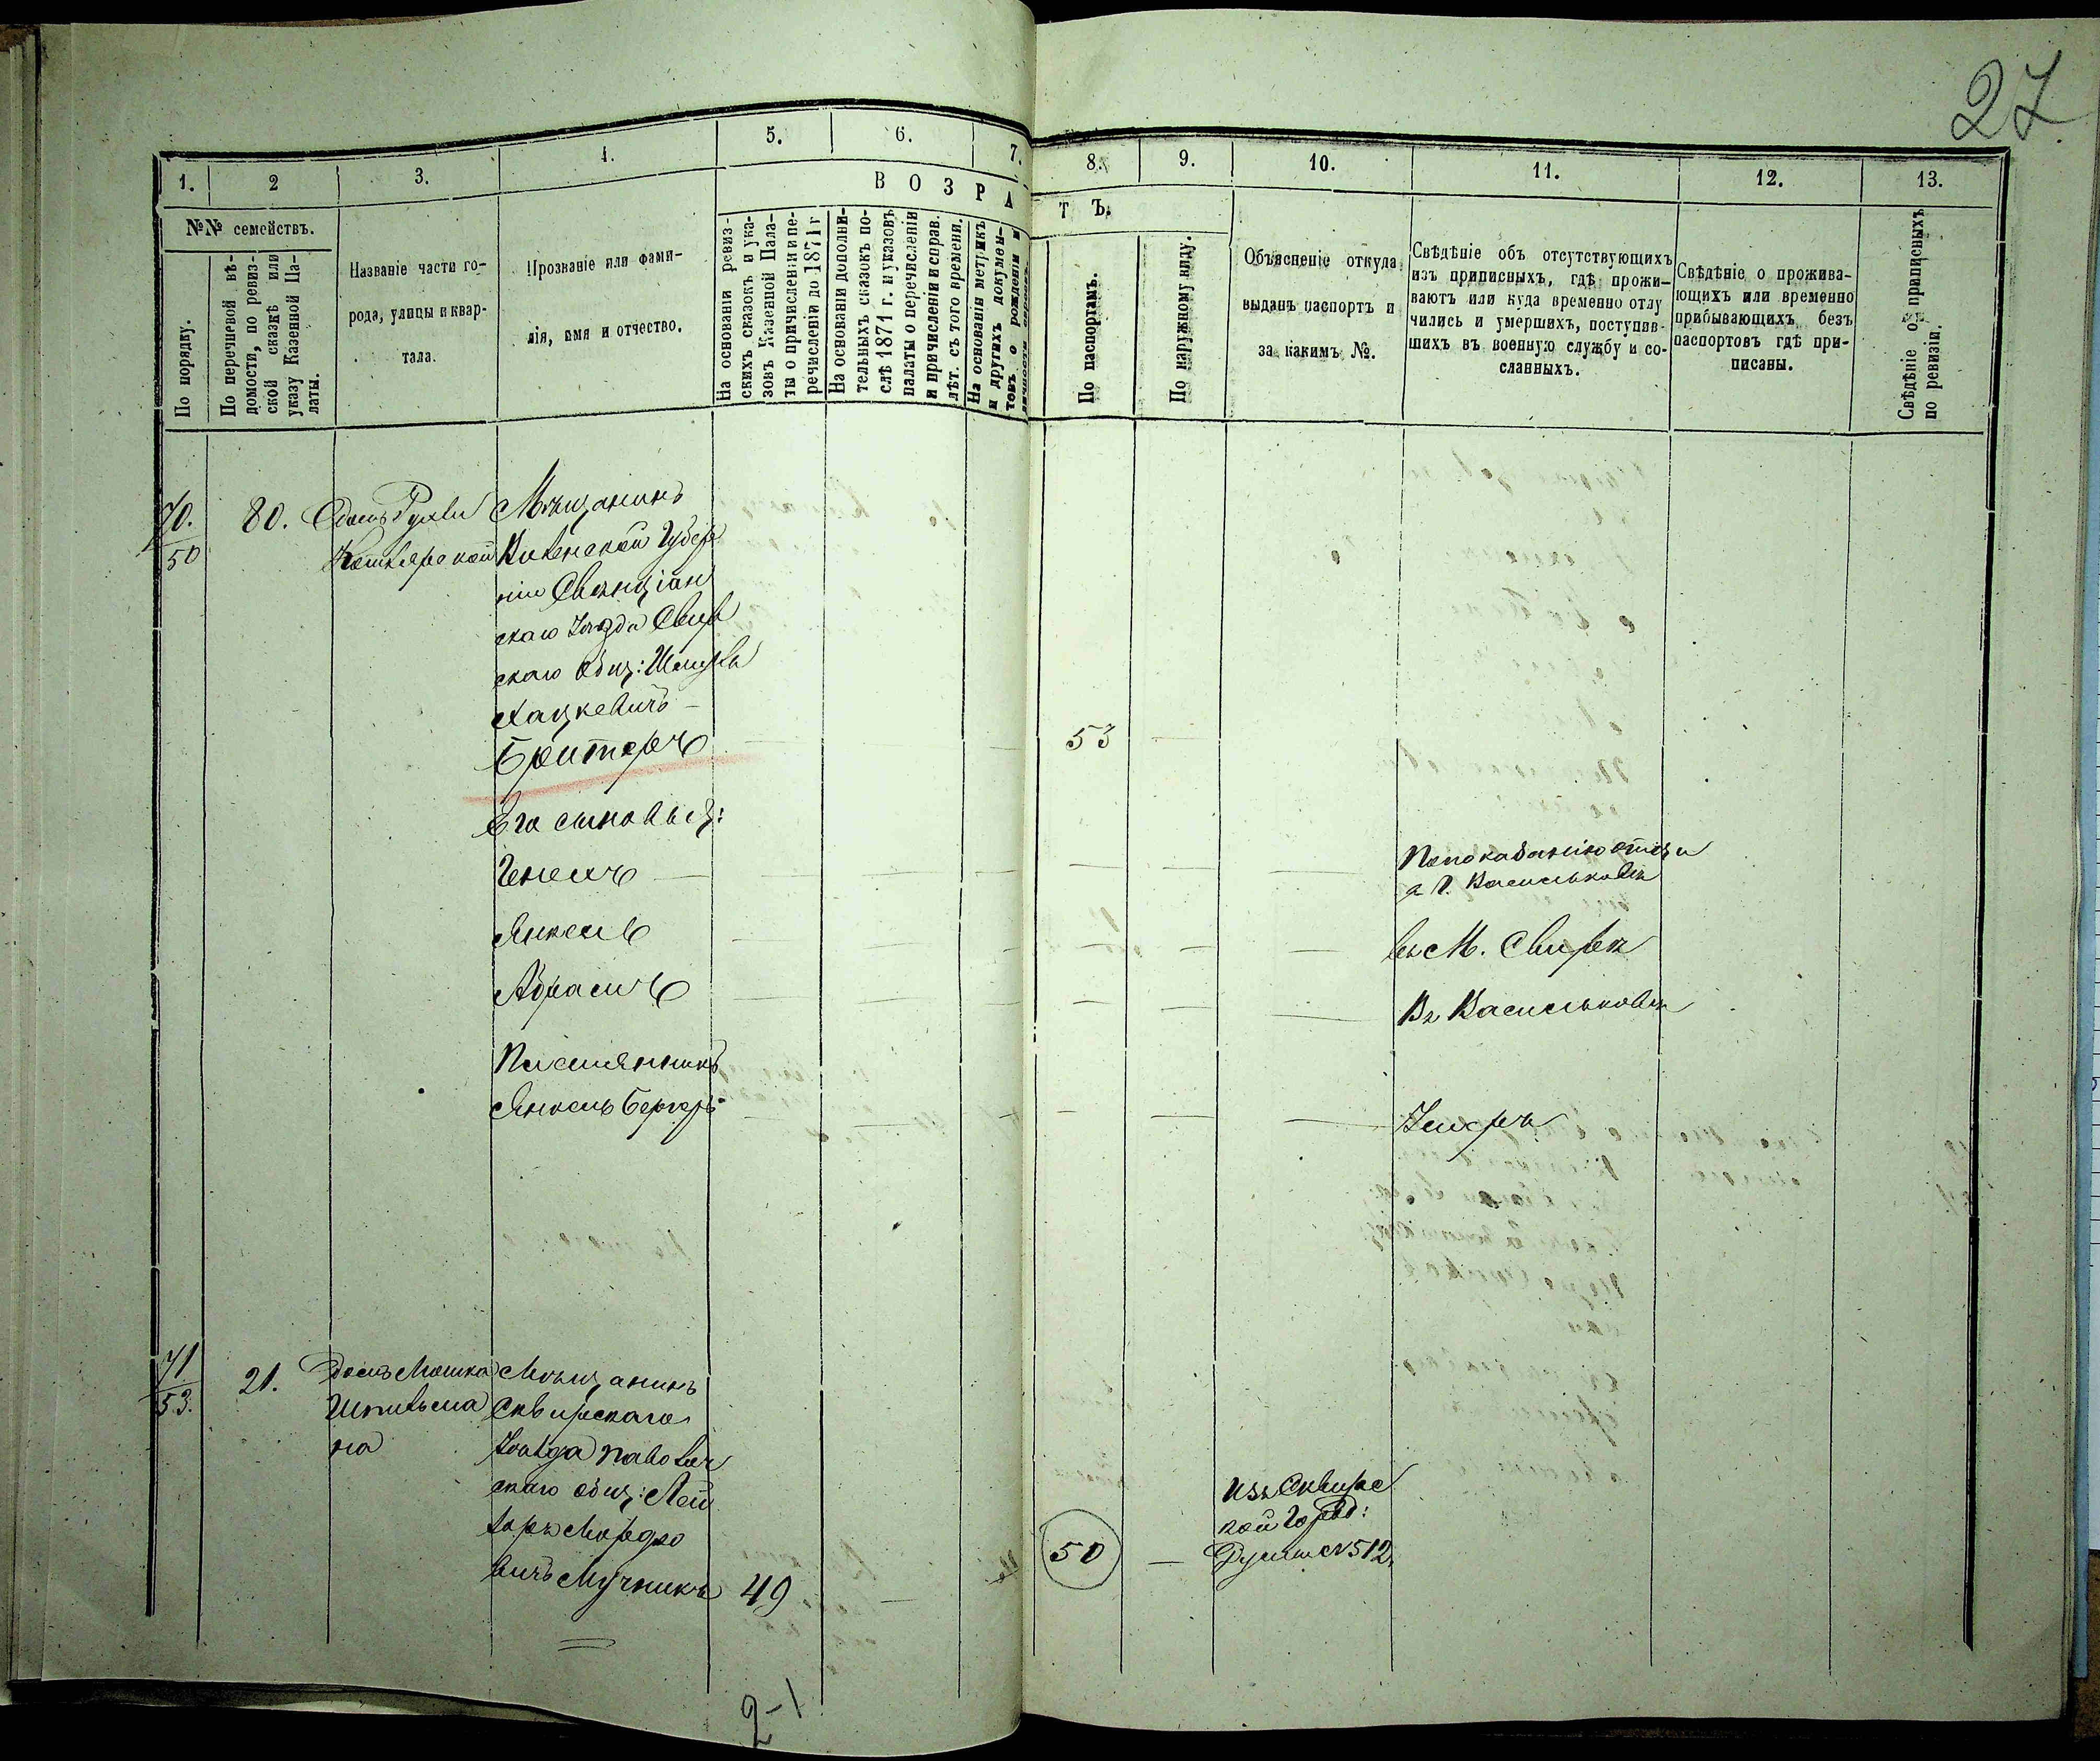 27
1.
2
3.
4.
5.
6.
7.
8.
9.
10.
11.
12.
13.
ВОЗРА
ТЪ.
№№ семействъ.
По порядку.
По перечневой вѣ-
домости, по ревиз-
ской сказкѣ или
указу Казенной Па-
латы.
Названіе части го-
рода, улицы и квар-
тала.
Прозваніе или фами-
лія, имя и отчество.
На основаніи ревиз-
скихъ сказокъ и ука-
зовъ Казенной Пала-
ты о причисленіи и пе-
речисленіи до 1871 г
На основаніи дополни-
тельныхъ сказокъ по-
слѣ 1871 г. и указовъ
палаты о перечисленіи
и причисленіи и справ.
лѣт. съ того времени.
На основаніи метрикъ
и другихъ докумен-
товъ о рожденіи и
По паспортамъ.
По наружному виду.
Объясненіе откуда
выданъ паспортъ и
за какимъ №.
Свѣдѣніе объ отсутствующихъ
изъ приписныхъ, гдѣ прожи-
ваютъ или куда временно отлу
чились и умершихъ, поступив-
шихъ въ военную службу и со-
сланныхъ.
Свѣдѣніе о прожива-
ющихъ или временно
прибывающихъ безъ
паспортовъ гдѣ при-
писаны.
Свѣдѣніе о приписныхъ
по ревизіи.
70.
50
80.
Домъ Рухли
Котлярской
Мѣщанинъ
Виленской Губер
ніи Свенціан
скаго Уѣзда Свир
скаго общ:
Хацкевичъ
53
Его сыновья:
По показанію отца
в Г. Васильковѣ
Янкель
въ М. Свирѣ
Абрамъ
Въ Васильковѣ
Племянникъ
Янкель Бергеръ
Умеръ
71
53.
21.
домъ Мошка
Шпильма
на
Мѣщанинъ
Сквирскаго
Уѣзда Паволоч
скаго общ: Лей
зоръ Мордко
вичъ Мучникъ
49
50
Изъ Сквирс
кой Город:
Думы №512
2-1